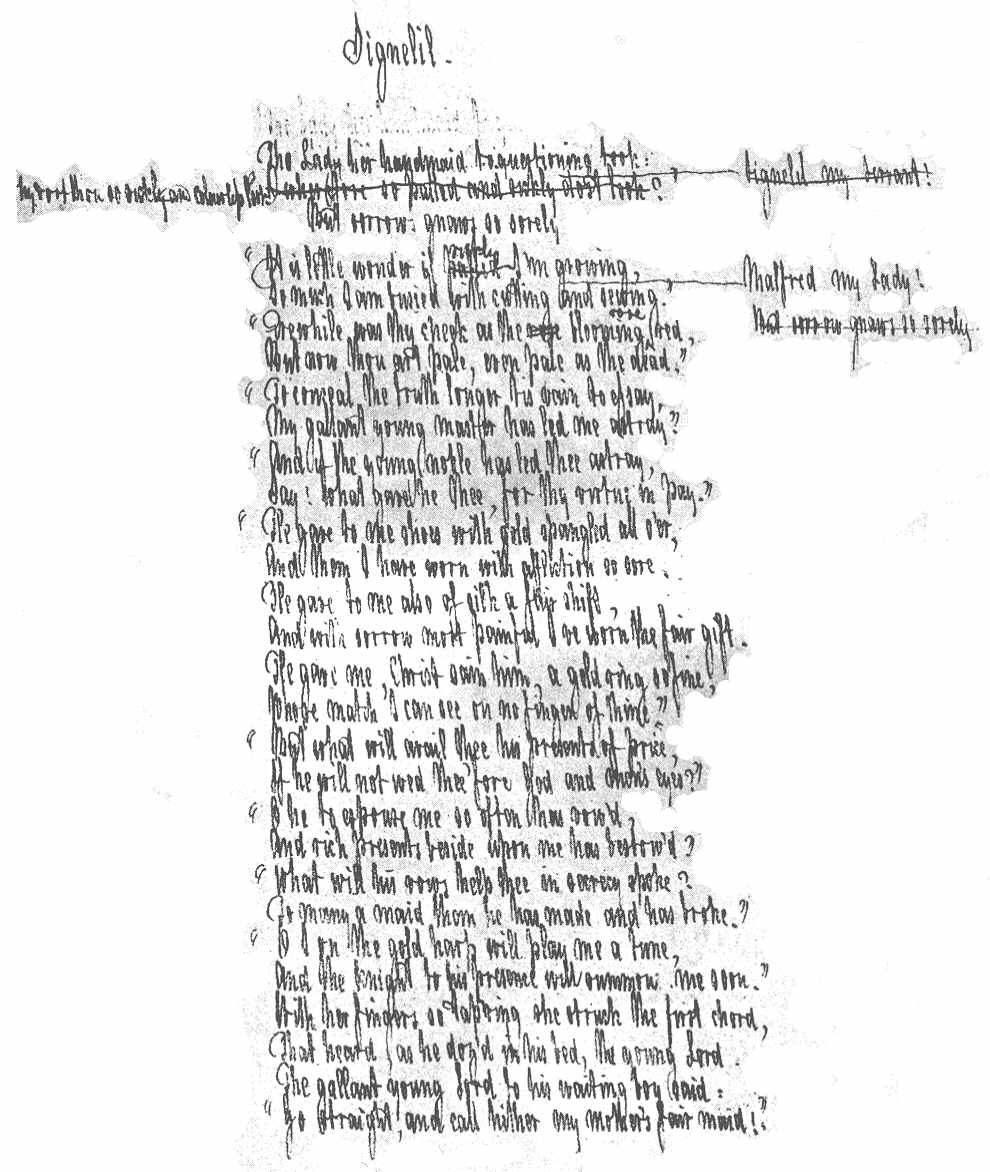 Signelil.
The Lady her handmaid to questioning took:
Signelil my servant!
Why dost thou so sickly and
"wherefore so pallid and sickly dost look?
But sorrow gnaws so sorely
"It is little wonder if pallid sickly I'm growing,
Malfred my Lady!
So much I am busied with cutting and sewing.
But sorrow gnaws so sorely.
"Erewhile was thy cheek as the rose blooming red,
But now thou art pale, even pale as the dead."
"To conceal the truth longer tis vain to essay,
My gallant young master has led me astray"
"And if the young noble has led thee astray,
Say! what gave he thee, for thy virtue in pay."
"He gave to me shoes with gold spangled all o'er,
And them I have worn with affliction so sore.
He gave to me also of silk a fair shift,
And with sorrow most painful I've worn the fair gift.
He gave me, Christ sain him, a gold ring so fine,
Whose match I can see on no finger of thine."
"But what will avail thee his presents of price,
If he will not wed thee fore God and men's eyes?"
"O he to espouse me so often has vow'd,
And rich presents beside upon me has bestow'd?
"What will his vows help thee in secrecy spoke?
To many a maid them he has made and has broke."
"O I on the gold harp will play me a tune,
And the knight to his presence will summon me soon."
With her fingers so tapring she struck the first chord,
That heard, as he doz'd in his bed, the young Lord.
The gallant young Lord to his waiting boy said:
"Go straight, and call hither my mother's fair maid!"